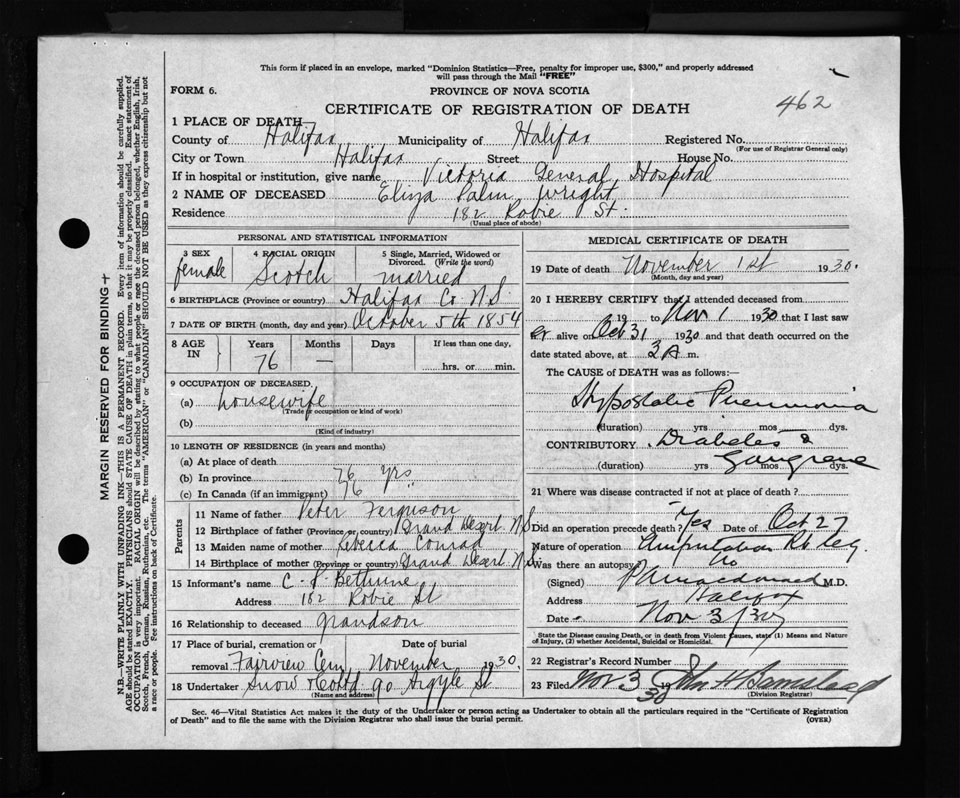 This form if placed in an envelope, marked "Dominion Statistics—Free, penalty for improper use, $300," and properly addressed
will pass through the Mail "FREE"
FORM 6.
PROVINCE OF NOVA SCOTIA
462
CERTIFICATE OF REGISTRATION OF DEATH
1 PLACE OF DEATH
County of Halifax Municipality of Halifax Registered No.
(For use of Registrar General only)
City or Town Halifax Street House No.
If in hospital or institution, give name Victoria General Hospital
2 NAME OF DECEASED Eliza Wright
Residence 182 Robie St.
(Usual place of abode)
PERSONAL AND STATISTICAL INFORMATION
3 SEX 4 RACIAL ORIGIN 5 Single, Married, Widowed or
Divorced. (Write the word)
female Scotch married
6 BIRTHPLACE (Province or country) Halifax Co N.S.
7 DATE OF BIRTH (month, day and year) October 5th 1854
8 AGE IN Years Months Days If less than one day,
76 — hrs. or min.
9 OCCUPATION OF DECEASED
(a) housewife
(Trade or occupation or kind of work)
(b)
(Kind of industry)
10 LENGTH OF RESIDENCE (in years and months)
(a) At place of death
(b) In province 76 yrs
(c) In Canada (if an immigrant) 76
Parents
11 Name of father Peter Ferguson
12 Birthplace of father (Province or country) Grand Desert N.S
13 Maiden name of mother Rebecca Conrad
14 Birthplace of mother (Province or country) Grand Desert N.S
15 Informant's name C. P. Bethune
Address 182 Robie St
16 Relationship to deceased grandson
17 Place of burial, cremation or Date of burial
removal Fairview Cem November 1930.
18 Undertaker Snow & Co Ltd 90 Argyle St
(Name and address)
MEDICAL CERTIFICATE OF DEATH
19 Date of death November 1st 1930.
(Month, day and year)
20 I HEREBY CERTIFY that I attended deceased from
19 to Nov 1 1930 that I last saw
er alive on Oct 31 1930 and that death occurred on the
date stated above, at 3 A m.
The CAUSE of DEATH was as follows:—
Hypostatic Pneumonia
(duration) yrs. mos. dys.
CONTRIBUTORY Diabetes &
Gangrene
(duration) yrs. mos. dys.
21 Where was disease contracted if not at place of death?
Did an operation precede death? Yes Date of Oct 27
Nature of operation Amputation Rt leg.
Was there an autopsy? No
(Signed) Macdonald M.D.
Address Halifax
Date Nov 3/30
State the Disease causing Death, or in death from Violent Causes, state (1) Means and Nature
of Injury, (2) whether Accidental, Suicidal or Homicidal.
22 Registrar's Record Number
23 Filed Nov 3 1930 John H Barnstead
(Division Registrar)
Sec. 46—Vital Statistics Act makes it the duty of the Undertaker or person acting as Undertaker to obtain all the particulars required in the "Certificate of Registration
of Death" and to file the same with the Division Registrar who shall issue the burial permit. (OVER)
MARGIN RESERVED FOR BINDING
N.B.—WRITE PLAINLY WITH UNFADING INK—THIS IS A PERMANENT RECORD. Every item of information should be carefully supplied.
AGE should be stated EXACTLY. PHYSICIANS should STATE CAUSE OF DEATH in plain terms, so that it may be properly classified. Exact statement of
OCCUPATION is very important. RACIAL ORIGIN will be described by stating to what people or race the deceased person belonged, whether English, Irish,
Scotch, French, German, Russian, Ruthenian, etc. The terms "AMERICAN" or "CANADIAN" SHOULD NOT BE USED as they express citizenship but not
a race or people. See instructions on back of Certificate.